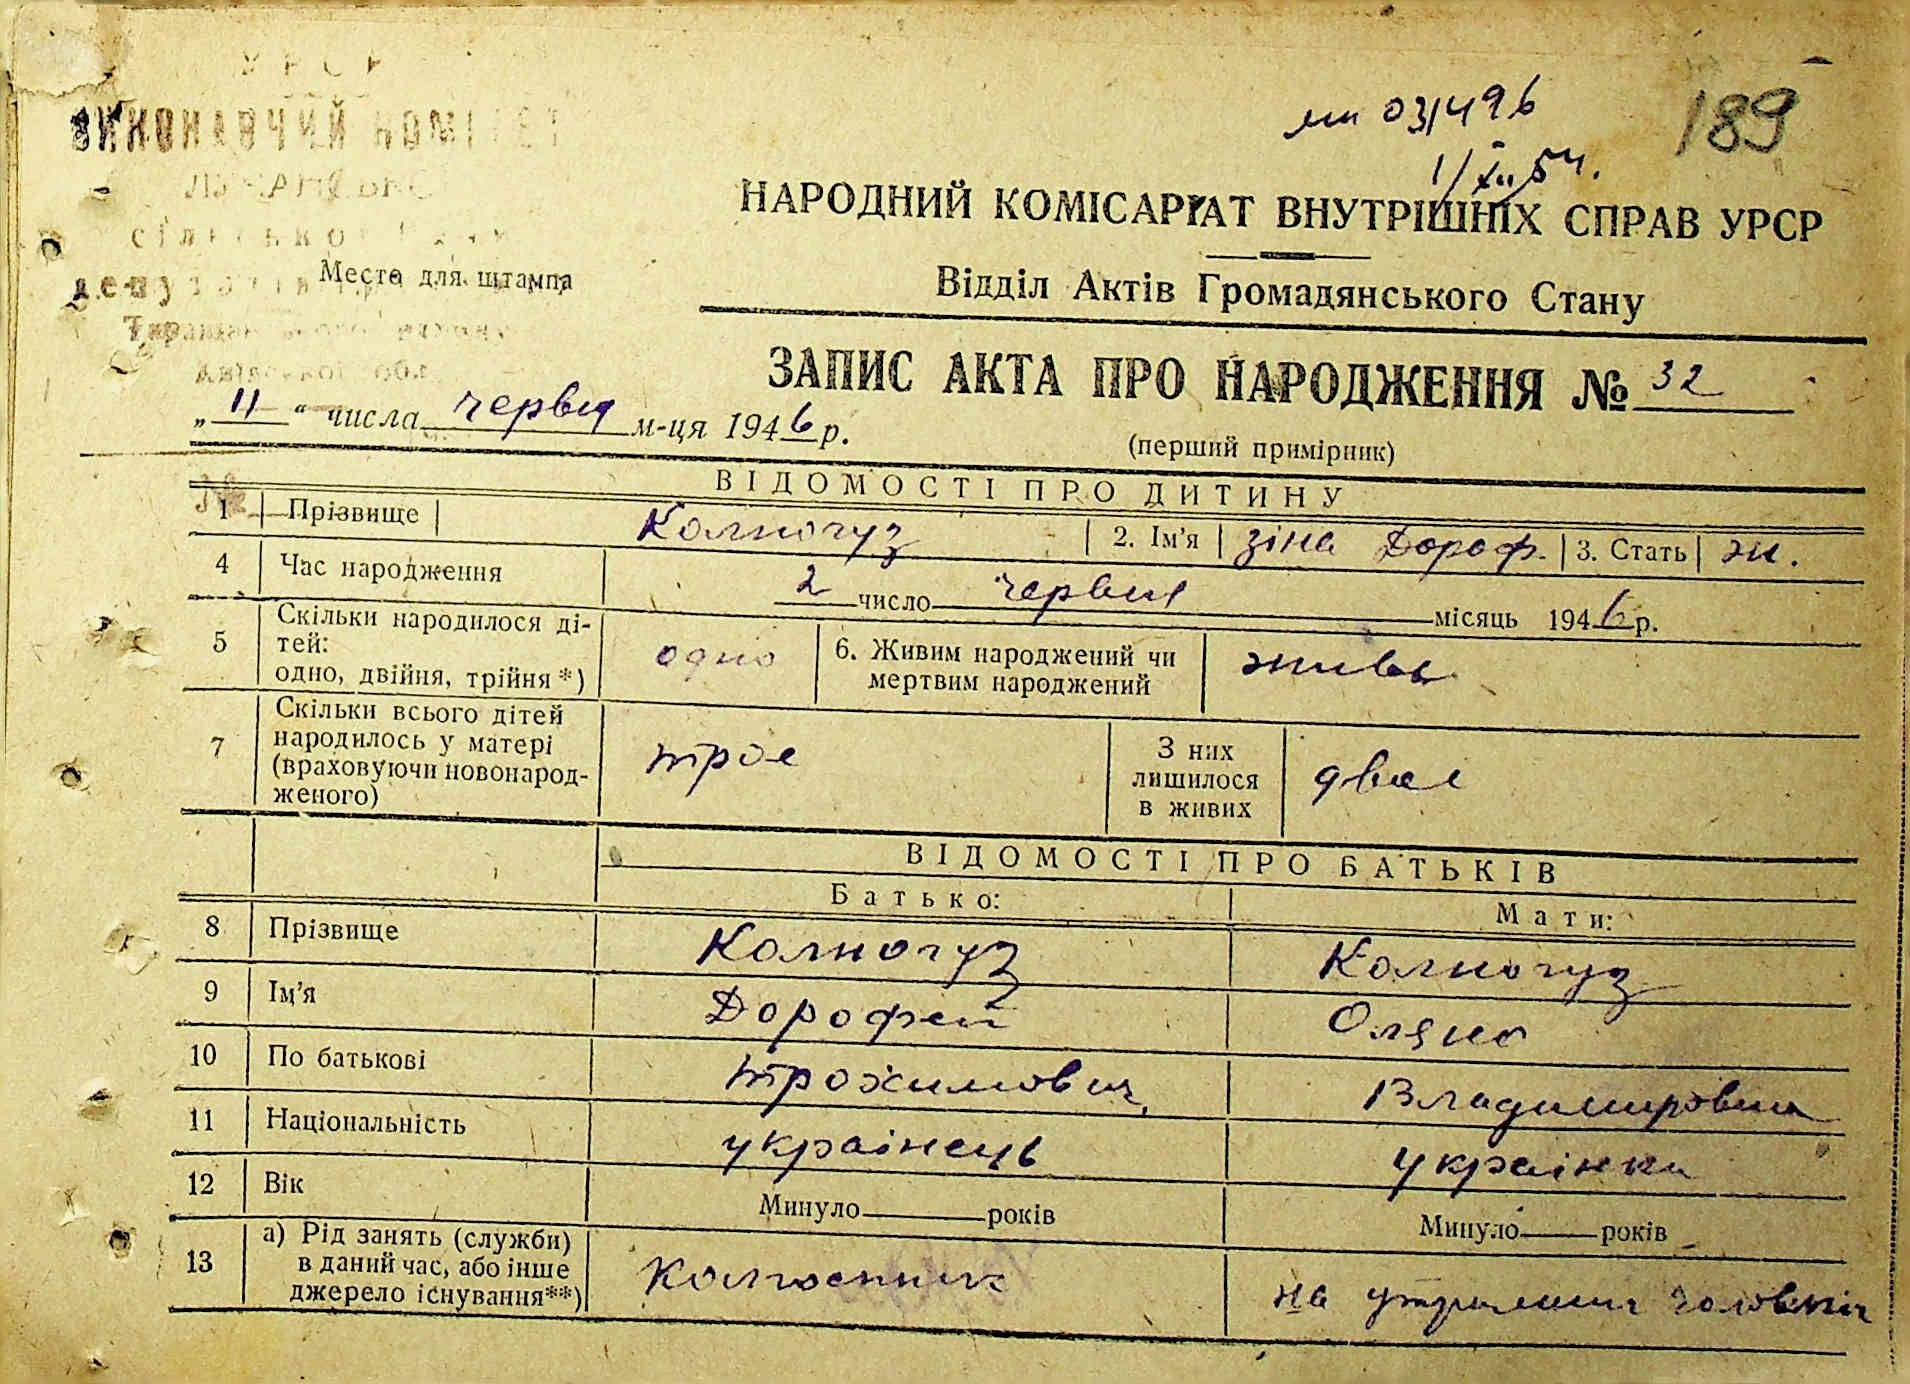 УРСР
ВИКОНАВЧИЙ КОМІТЕТ
сільської Ради
депутатів
Место для штампа
мп 03/496
1/XII 54.
189
НАРОДНИЙ КОМІСАРІАТ ВНУТРІШНІХ СПРАВ УРСР
Відділ Актів Громадянського Стану
ЗАПИС АКТА ПРО НАРОДЖЕННЯ № 32
„11“ числа червня м-ця 1946 р.
(перший примірник)
ВІДОМОСТІ ПРО ДИТИНУ
1 Прізвище Колногуз 2. Ім'я Зіна Дороф. 3. Стать ж.
4 Час народження 2 число червня місяць 1946 р.
5 Скільки народилося ді-
тей:
одно, двійня, трійня *) одно 6. Живим народжений чи
мертвим народжений живь
7 Скільки всього дітей
народилось у матері
(враховуючи новонарод-
женого) трое З них
лишилося
в живих двое
ВІДОМОСТІ ПРО БАТЬКІВ
Батько: Мати:
8 Прізвище Колногуз Колногуз
9 Ім'я Дорофей Оляна
10 По батькові Трохимович Владимировна
11 Національність українець українка
12 Вік Минуло років Минуло років
13 а) Рід занять (служби)
в даний час, або інше
джерело існування**) Колгоспник на утриманні чоловіка